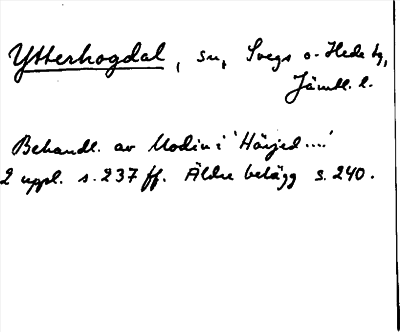 Ytterhogdal, sn, Svegs o. Hede tg,
Jämtl. l.
Behandl. av Modin i 'Härjed....'
2 uppl. s. 237 ff. Äldre belägg s. 240.